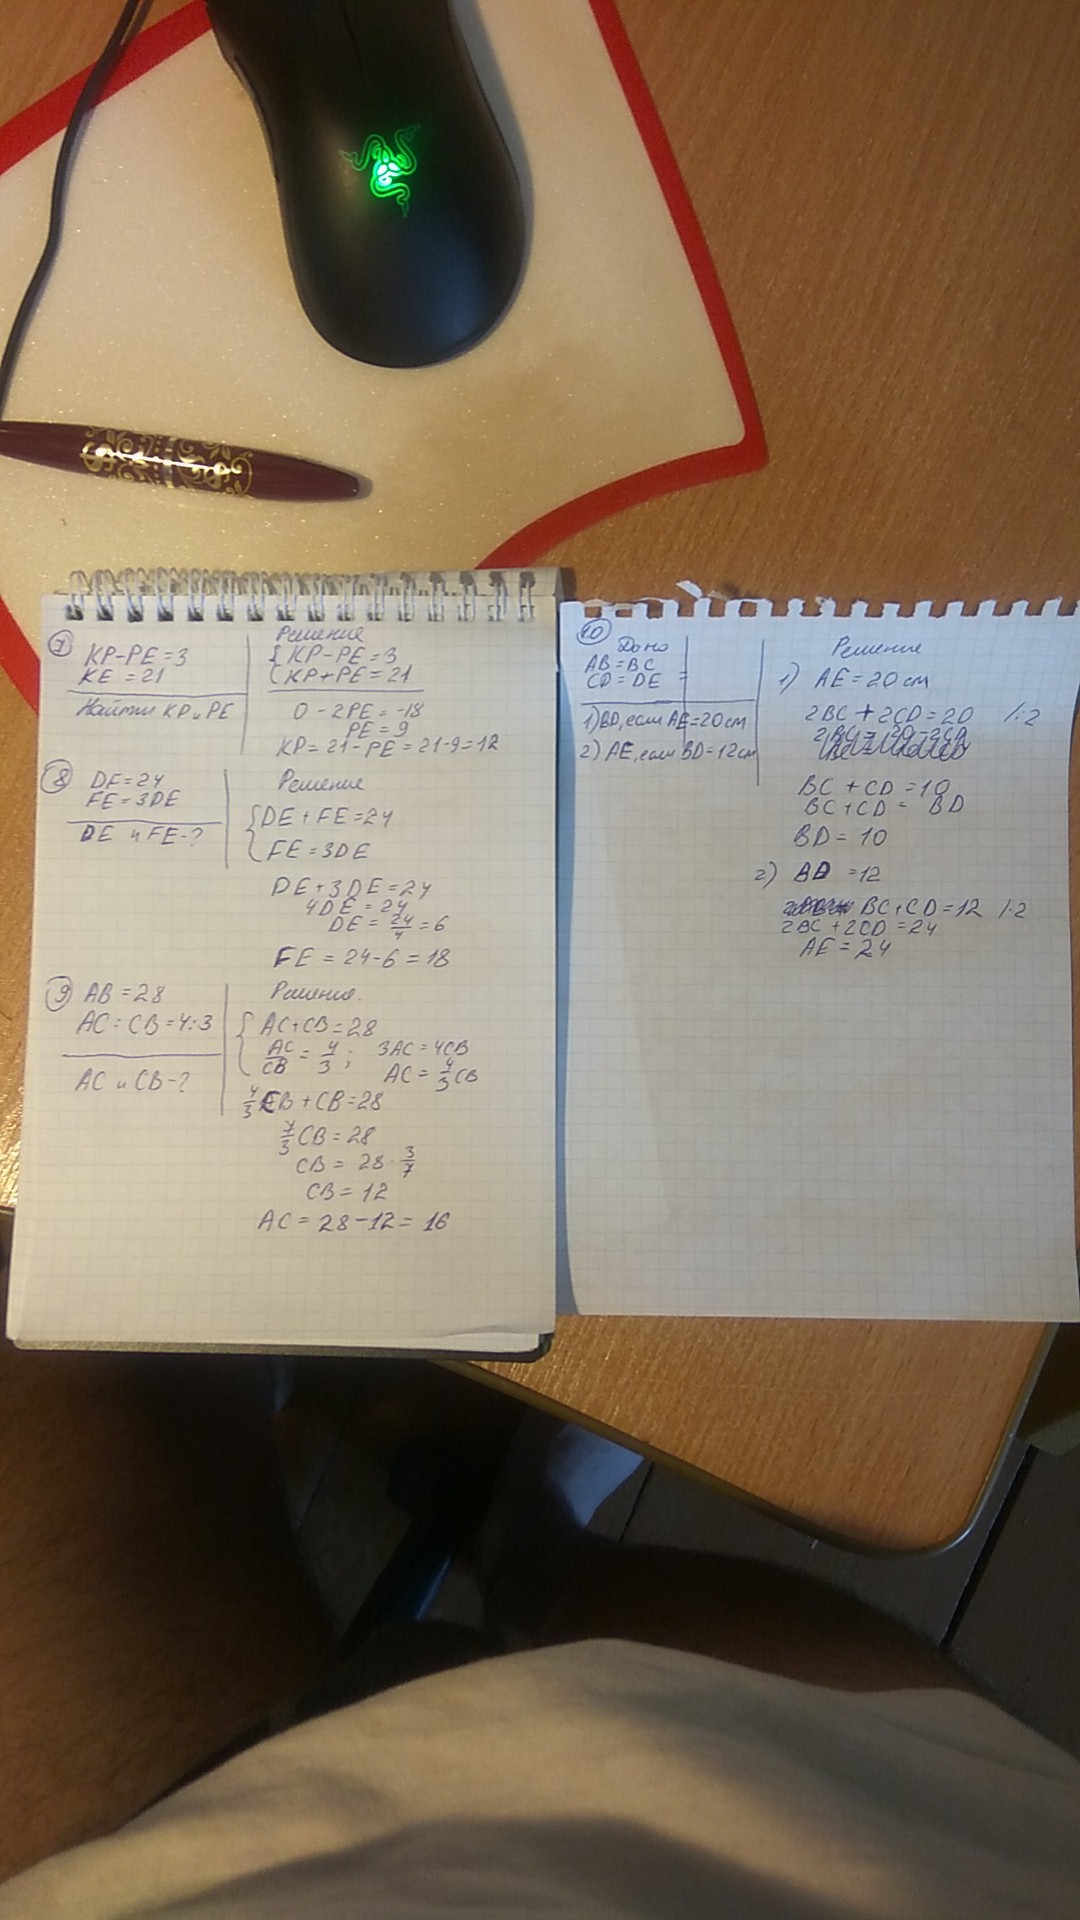 7
KP-PE=3
KE =21
Найти KP и PE
Решение
KP-PE=3
KP+PE=21
0-2PE=-18
PE=9
KP=21-PE=21-9=12
8
DF=24
FE=3DE
DE и FE-?
Решение
DE+FE=24
FE=3DE
DE+3DE=24
4DE=24
DE=24/4=6
FE=24-6=18
9
AB=28
AC:CB=4:3
AC и CB-?
Решение.
AC+CB=28
AC/CB=4/3; 3AC=4CB
AC=4/3CB
4/3CB+CB=28
7/3CB=28
CB=28·3/7
CB=12
AC=28-12=16
10
Дано
AB=BC
CD=DE
1)BD, если AE=20см
2) AE, если BD=12см
Решение
1) AE=20см
2BC+2CD=20 /:2
BC+CD=10
BC+CD=BD
BD=10
2) BD=12
BC+CD=12 /·2
2BC+2CD=24
AE=24